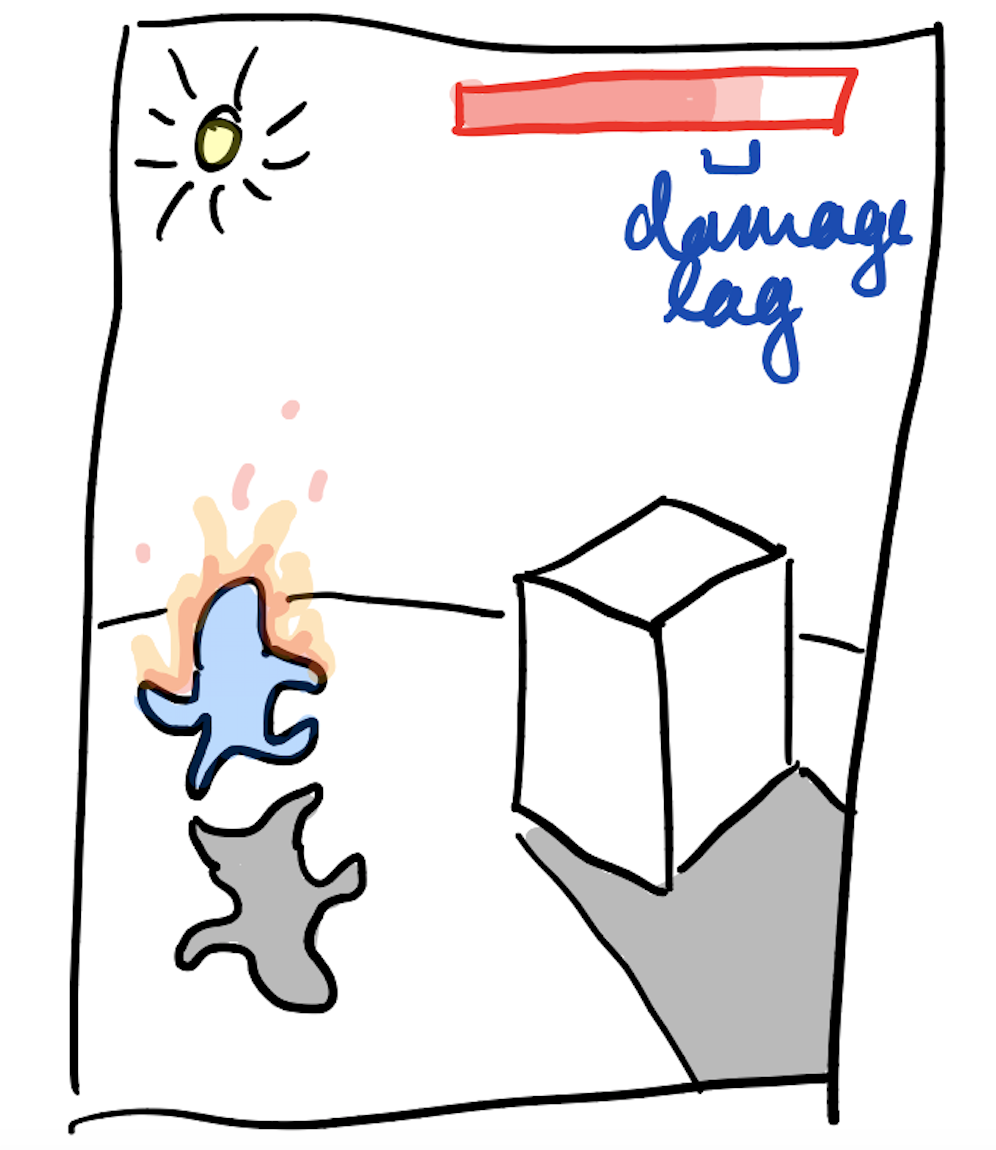 damage
lag